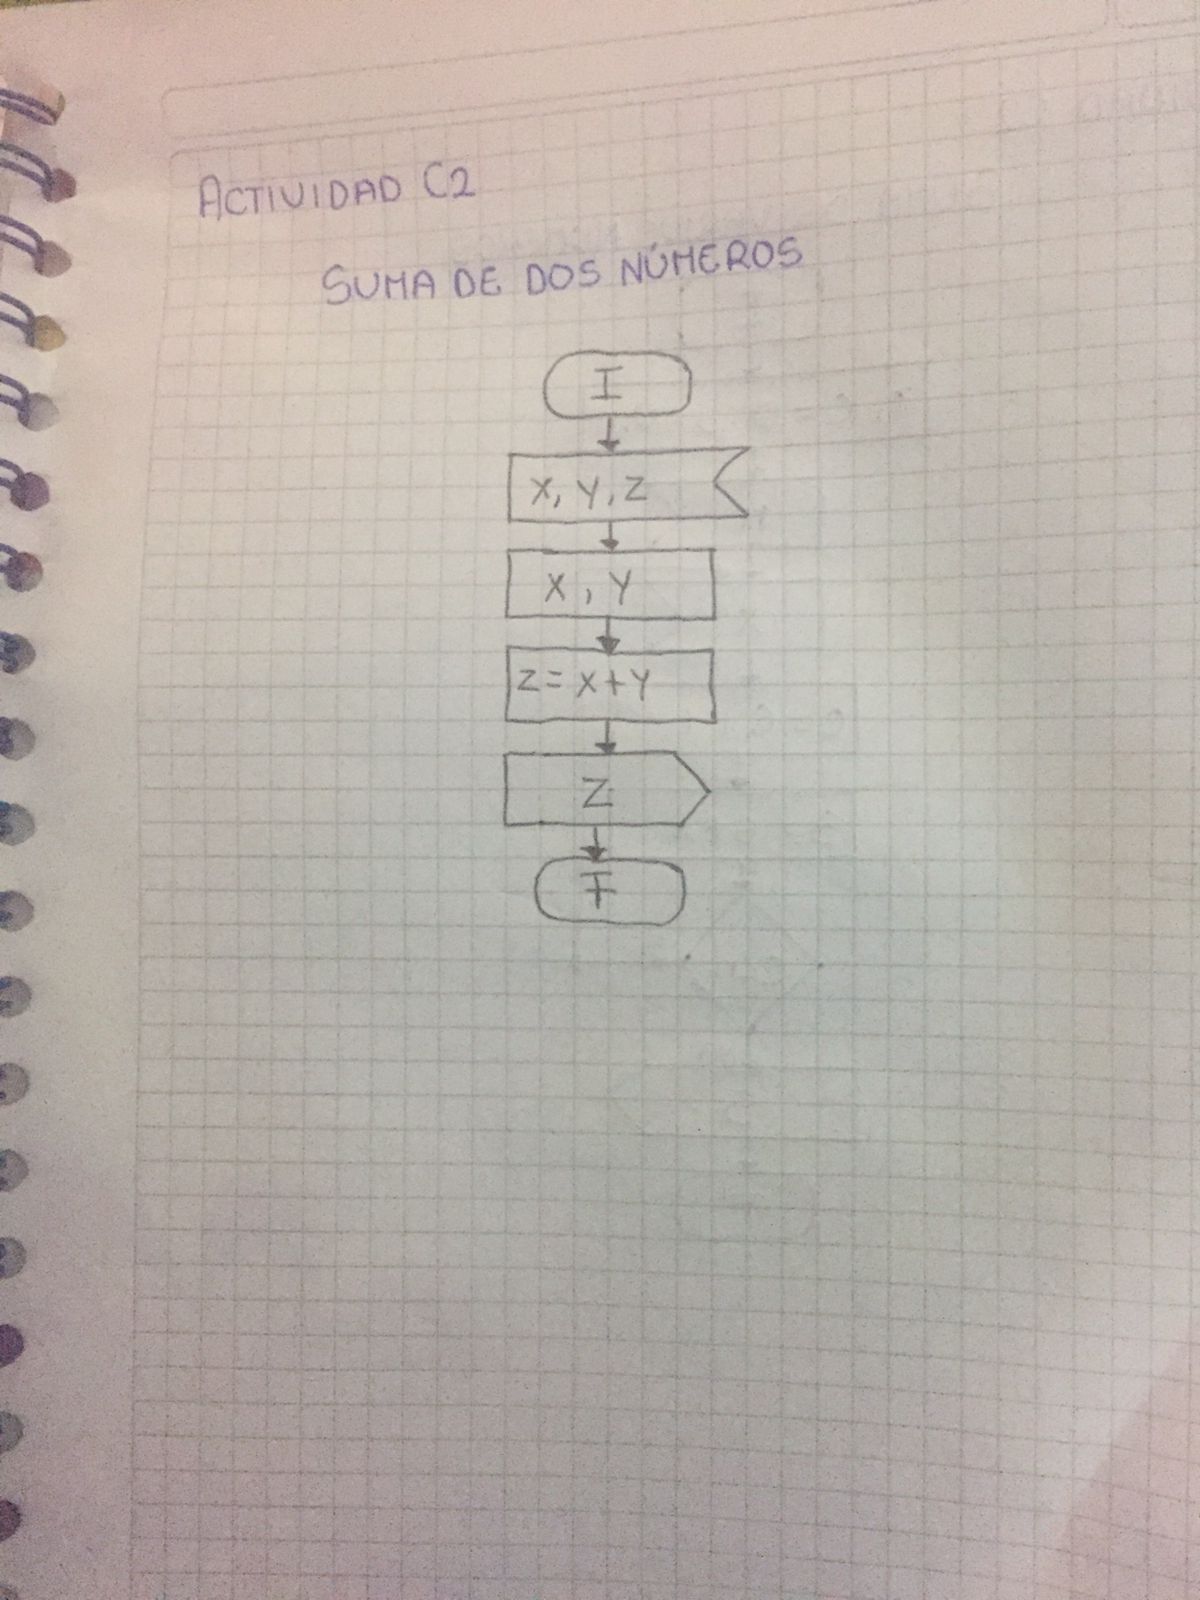 ACTIVIDAD C2
SUMA DE DOS NÚMEROS
I
X, Y, Z
X, Y
Z = X + Y
Z
F